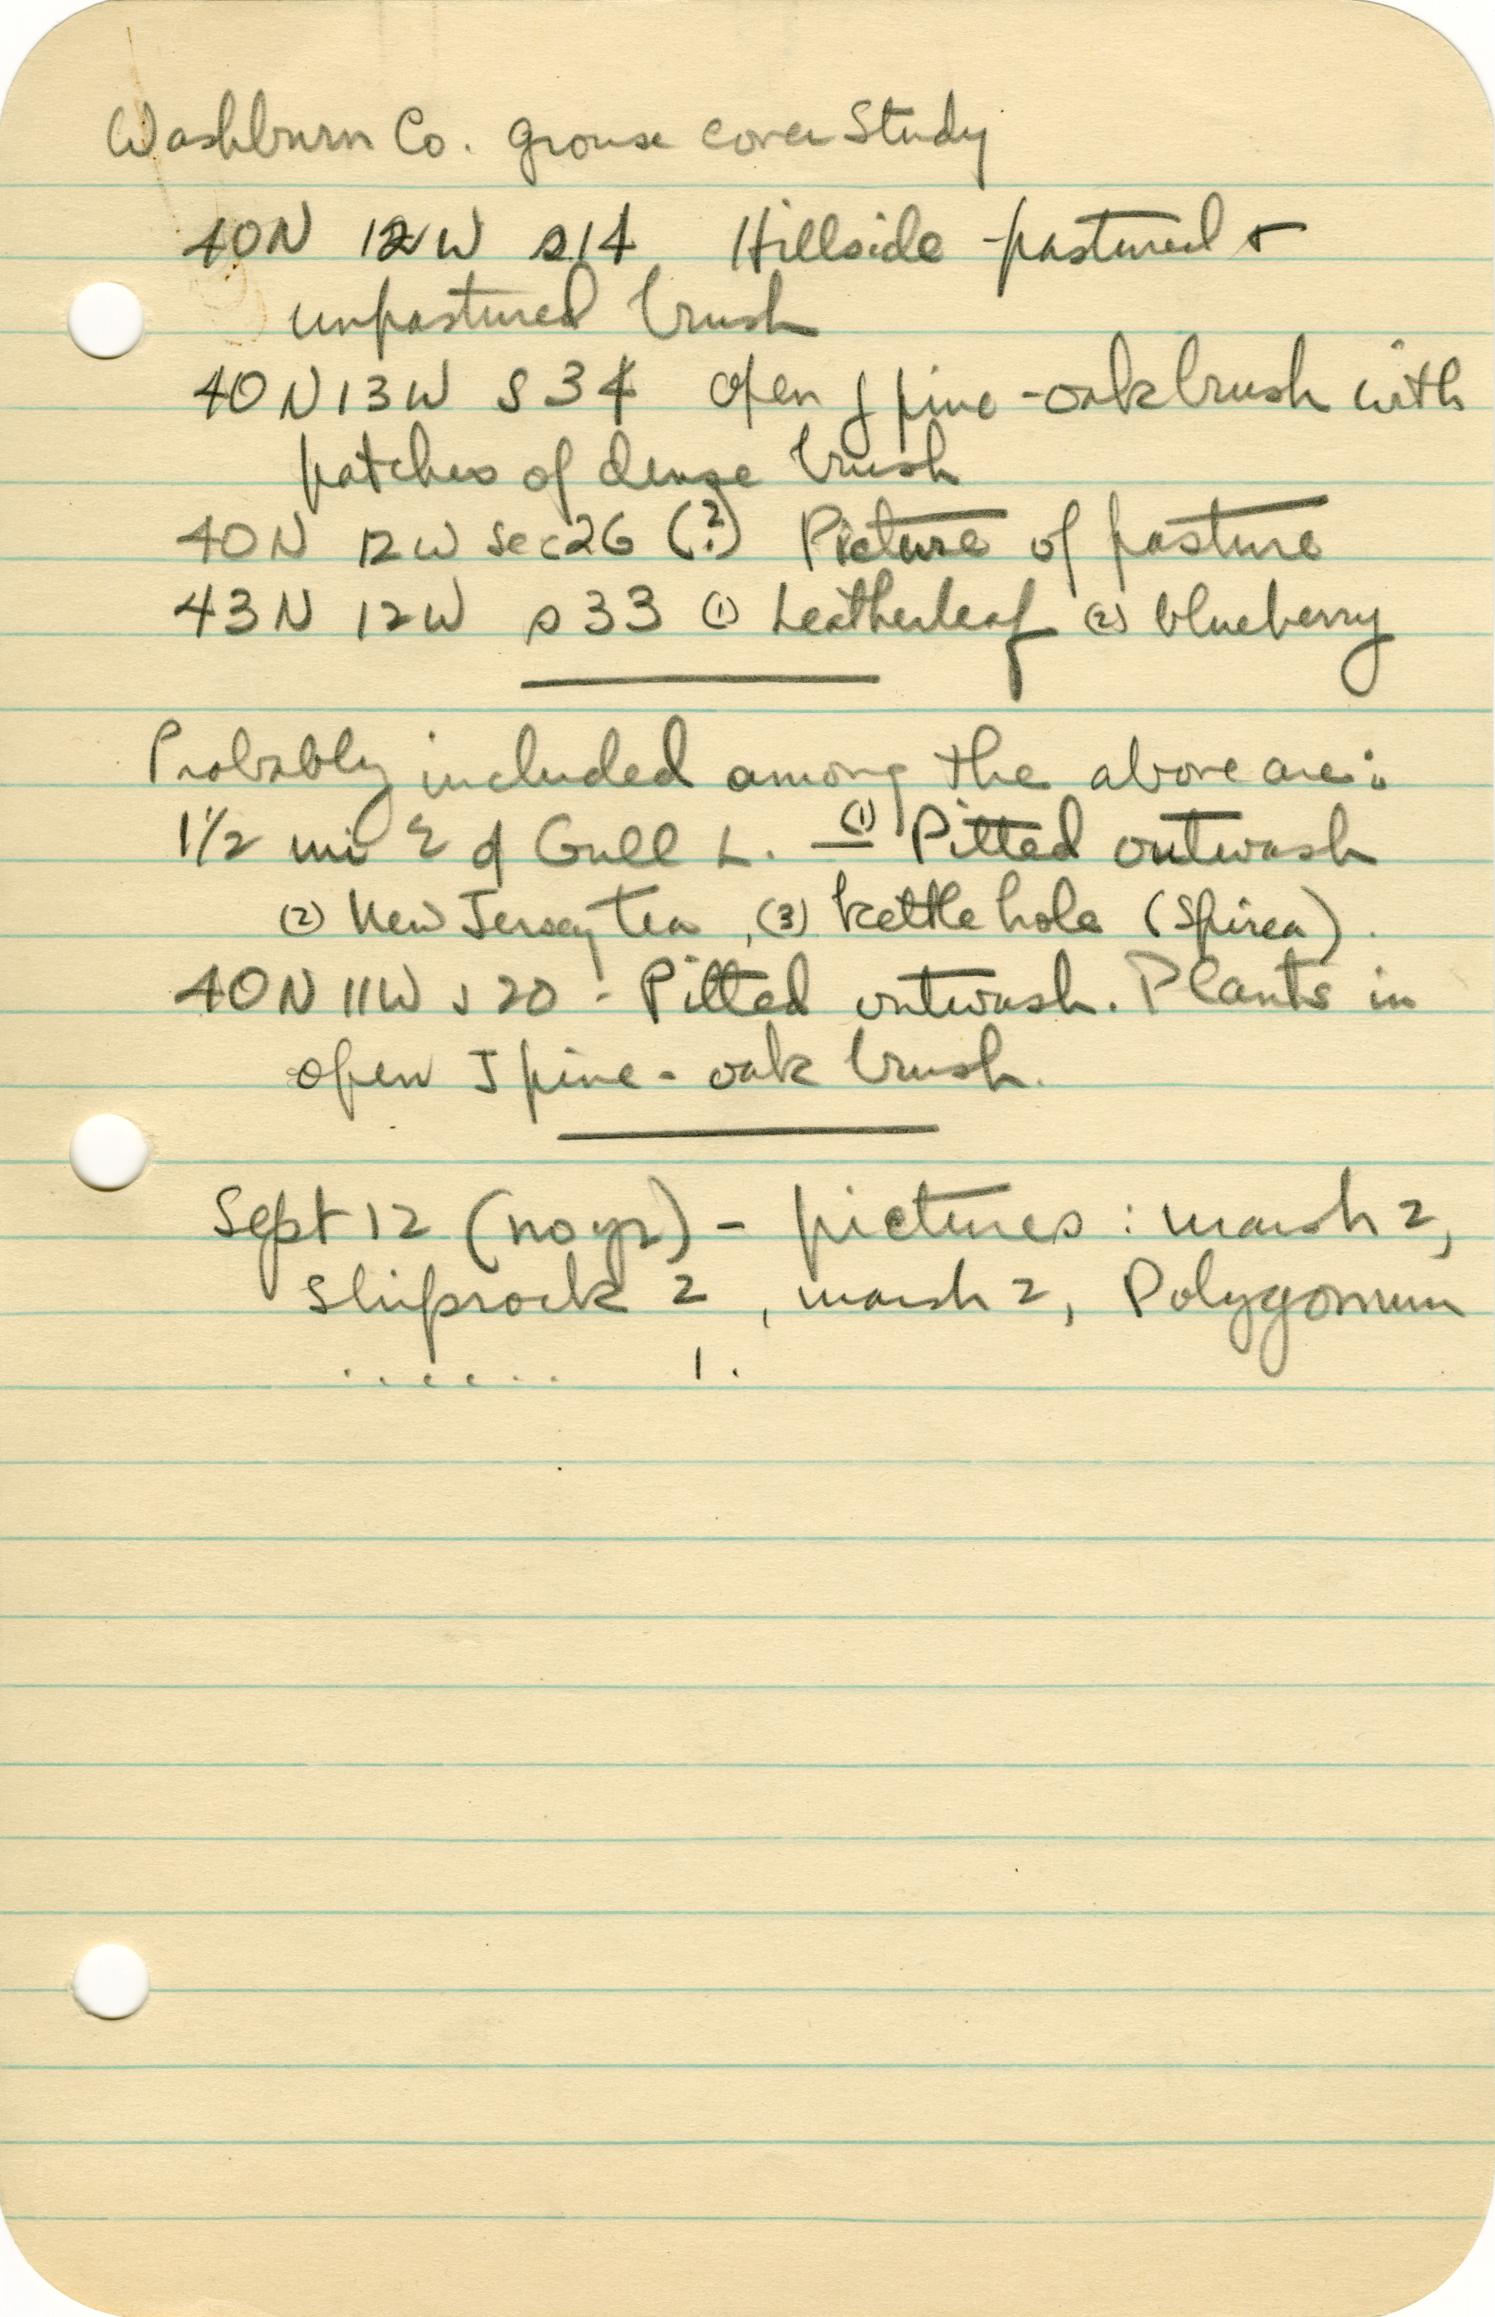 Washburn Co. grouse cover Study
40N 12W s14 Hillside - pastured +
unpastured brush
40N 13W s34 open J pine-oak brush with
patches of dense brush
40N 12W sec 26 (?) Picture of pasture
43N 12W s33 (1) Leatherleaf (2) blueberry
Probably included among the above are:
1 1/2 mi E of Gull L. — (1) Pitted outwash
(2) New Jersey tea, (3) Kettle hole (Spirea).
40N 11W s20 - Pitted outwash. Plants in
open J pine - oak brush.
Sept 12 (no yr) - pictures: marsh 2,
Shiprock 2, marsh 2, Polygonum
....... 1.